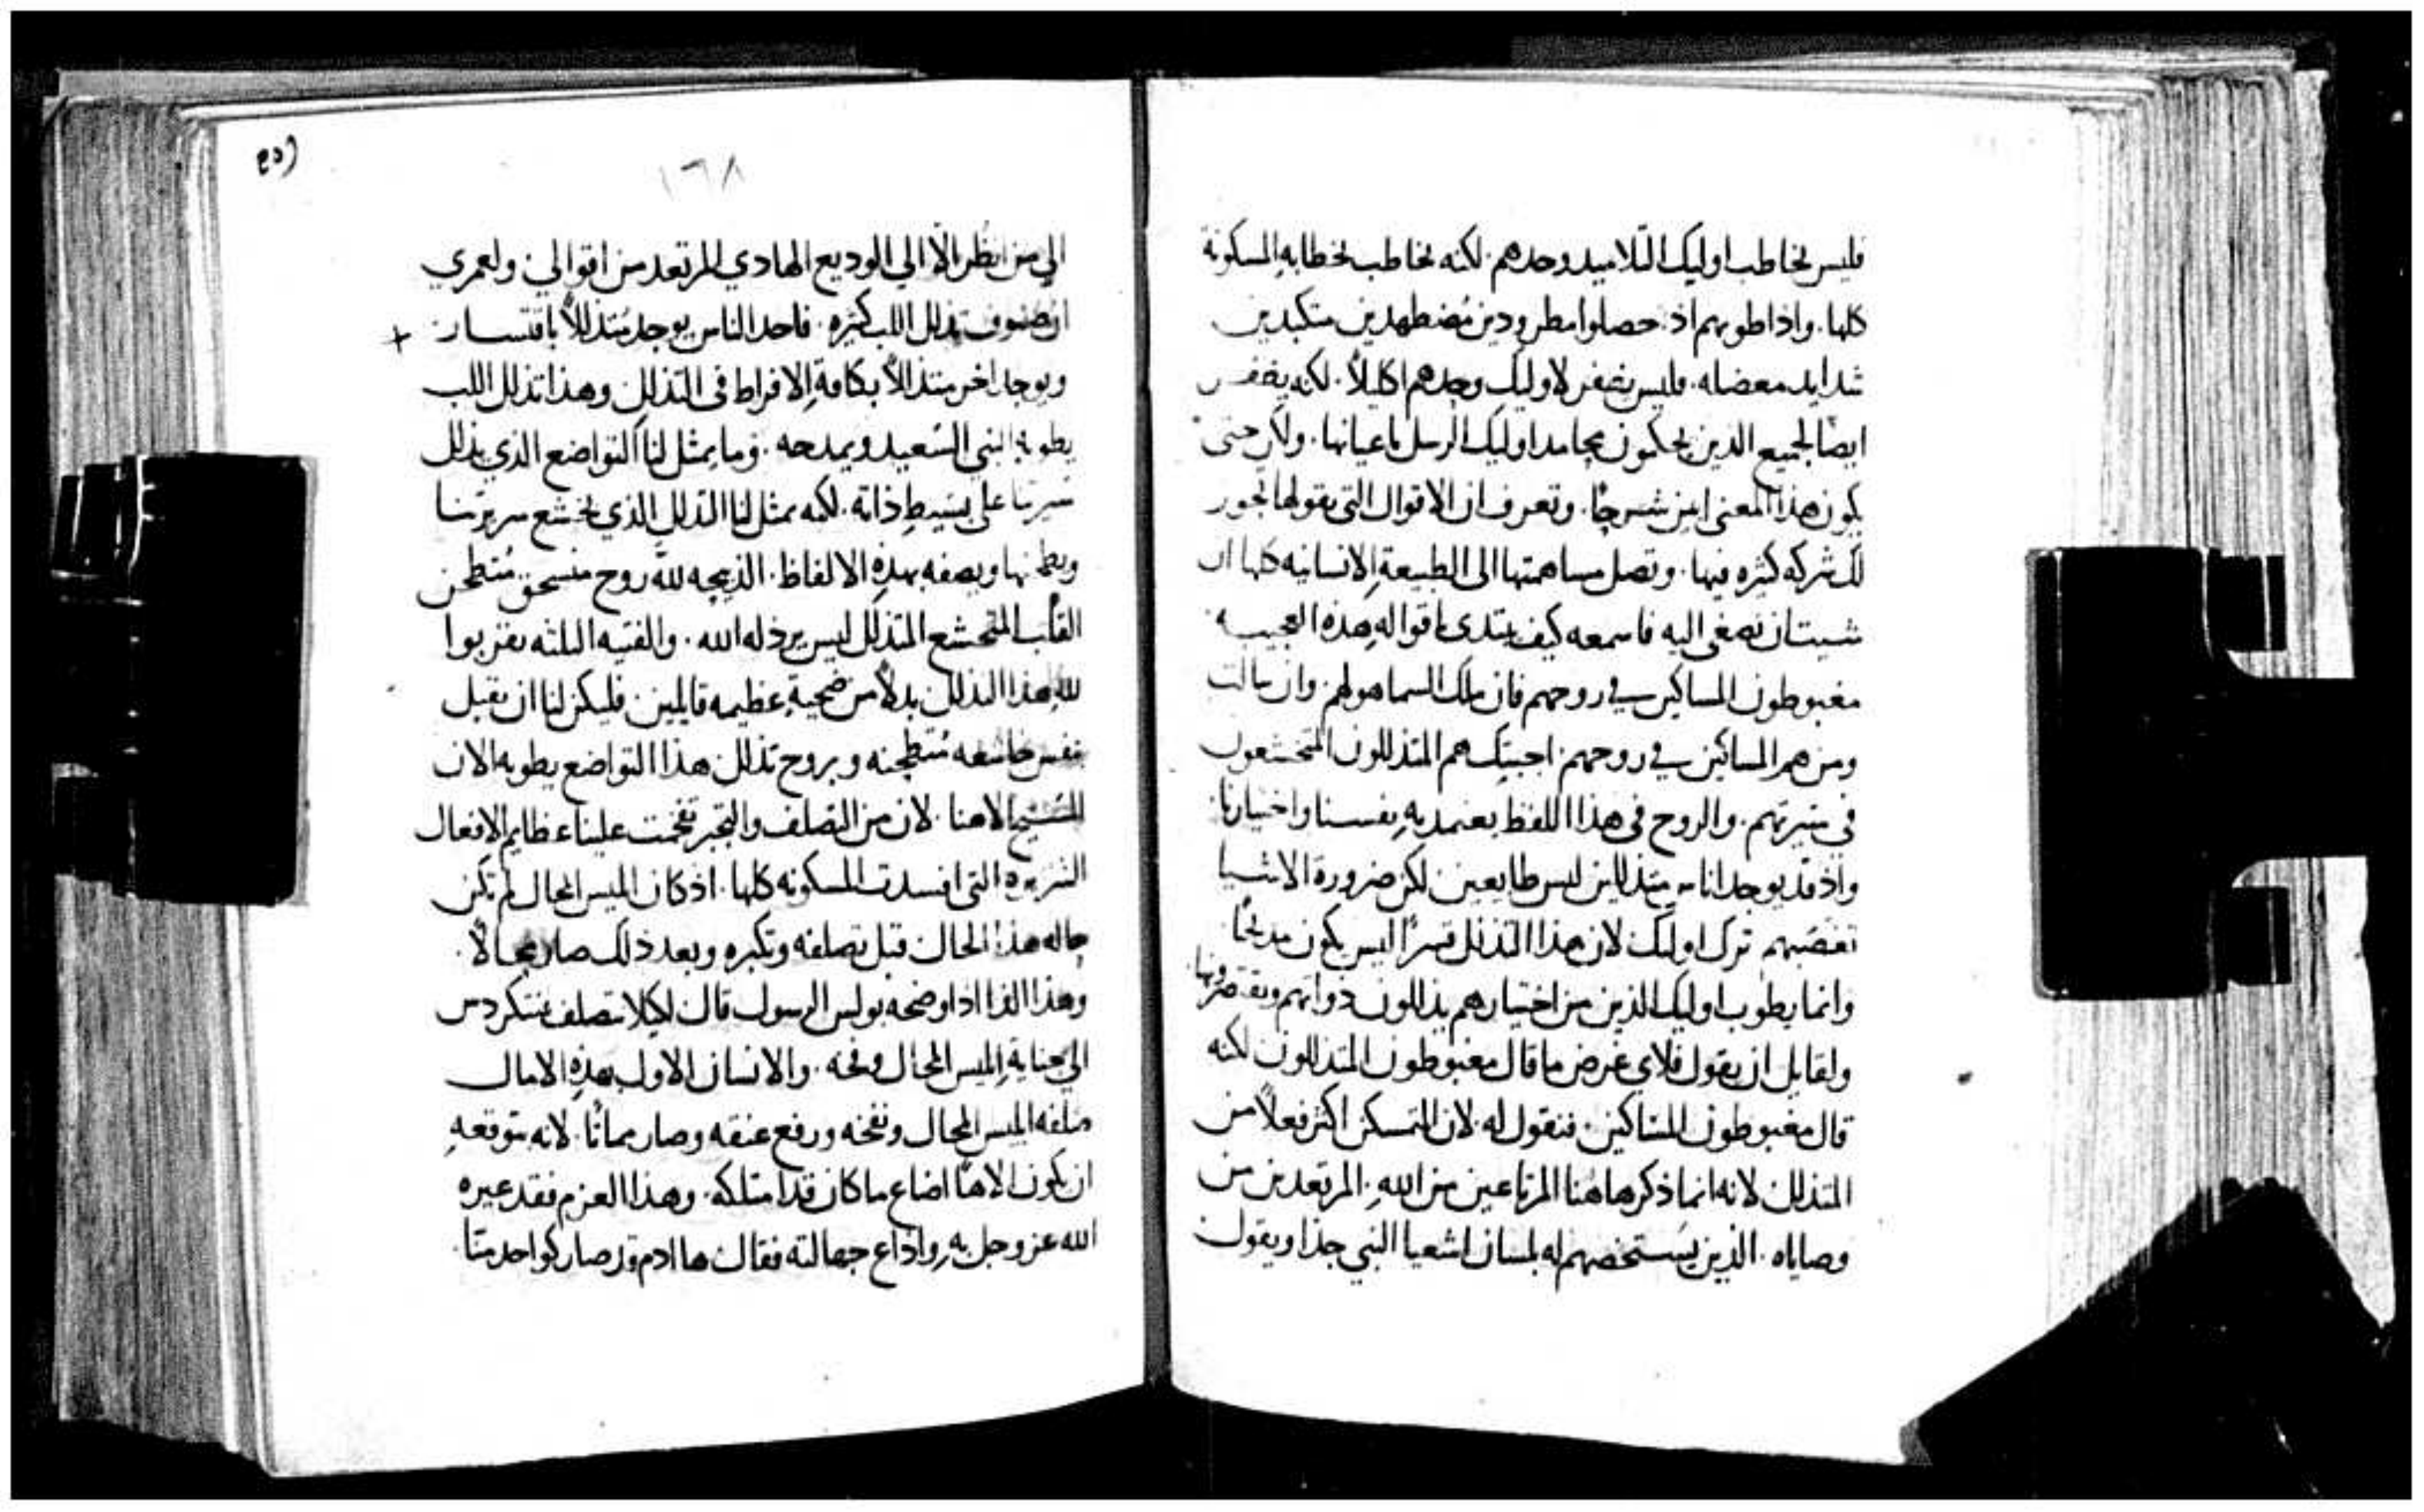 فليس يخاطب اوليك التلاميد وحدهم. لكنه يخاطب بخطابهِ المسكونة
كلها. واذا طوبهم اذ حصلوا مطرودين مُضطهدين متكبدين
شدايد معضله. فليس يضفر لاوليك وحدهم اكليلاً. لكنه يضفر
ايضًا لجميع الذين يحكمون محامد اوليك الرسل باعيانها. ولان حتى
يكون هذا المعنى ابين شرحًا. وتعرف ان الاقوال التي يقولها نحور
لك شركه كثيره فيها. وتصل مساهمتها الى الطبيعةِ الانسانيه كلها ان
شيت ان تصغى اليه فاسمعه كيف يبتدى باقوالهِ هذه العجيبه.
مغبوطون المساكين في روحهم فان ملك السما هو لهم. وان سالت
ومن هم المساكين في روحهم. اجبتك هم المتذللون المتخشعون
في سريرتهم. والروح في هذا اللفظ يعتمد بهِ نفسنا واختيارنا
واذ قد يوجد اناس متذللين ليس طايعين لكن ضرورة الاشيا
تغصبهم ترك اوليك لان هذا التذلل قسرًا ليس يكون مديحًا
وانما يطوب اوليك الذين من اختيارهم يذللون ذواتهم ويقتصرونها.
ولقايل ان يقول فلاى غرض ما قال مغبوطون المتذللون لكنه
قال مغبوطون المساكين. فنقول له لان التمسكن اكثر فعلاً من
المتذلل لانه انما ذكر هاهنا المرتاعين من اللهِ. المرتعدين من
وصاياه. الذين يستخصهم له بلسان اشعيا النبي جدًا ويقول
١٦٨
الي من انظر الّا الي الوديع الهادي المرتعد من اقوالي. ولعمري
ان صنوف تذلل اللب كثيره. فاحد الناس يوجد متذللاً باقتسار
ويوجد اخر متذللاً بكافةِ الافراط في التذلل وهذا تذلل اللب
يطوبه النبي السعيد ويمدحه. وما يمثل لنا التواضع الذي يذلل
سيرتنا على بسيطِ ذاته. لكنه يمثل لنا التذلل الذي يخشع سريرتنا
ويطحنها ويصفه بهذهِ الالفاظ. الذبيحه لله روح منسحق مُنطحن
القلب المتخشع المتذلل ليس يرذله الله. والفتيه الثلثه يقربوا
لله هذا التذلل بدلاً من ضحيةٍ عظيمه قايلين فليكن لنا ان نقبل
بنفس خاشعه مُنطحنه وبروح تذلل هذا التواضع يطوبه الان
المسيح الاهنا. لان من التصلف والتجبر تفخمت علينا عظايم الافعال
الشريره التي افسدت المسكونه كلها. اذ كان ابليس المحال لم تكن
حاله هذا الحال قبل تصلفه وتكبره وبعد ذلك صار محالاً.
وهذا اذا اوضحه بولس الرسول قال لكيلا تصلف فتتكردس
الى جنايةِ ابليس المحال وفخه. والانسان الاول بهذهِ الامال
صلفه ابليس المحال ونفخه ورفع عنقه وصار مماتًا. لانه بتوقعهِ
ان يكون الاهًا اضاع ما كان قد امتلكه. وهذا العزم فقد عيره
الله عز وجل بهِ واذاع جهالته فقال ها ادم قد صار كواحد منّا.